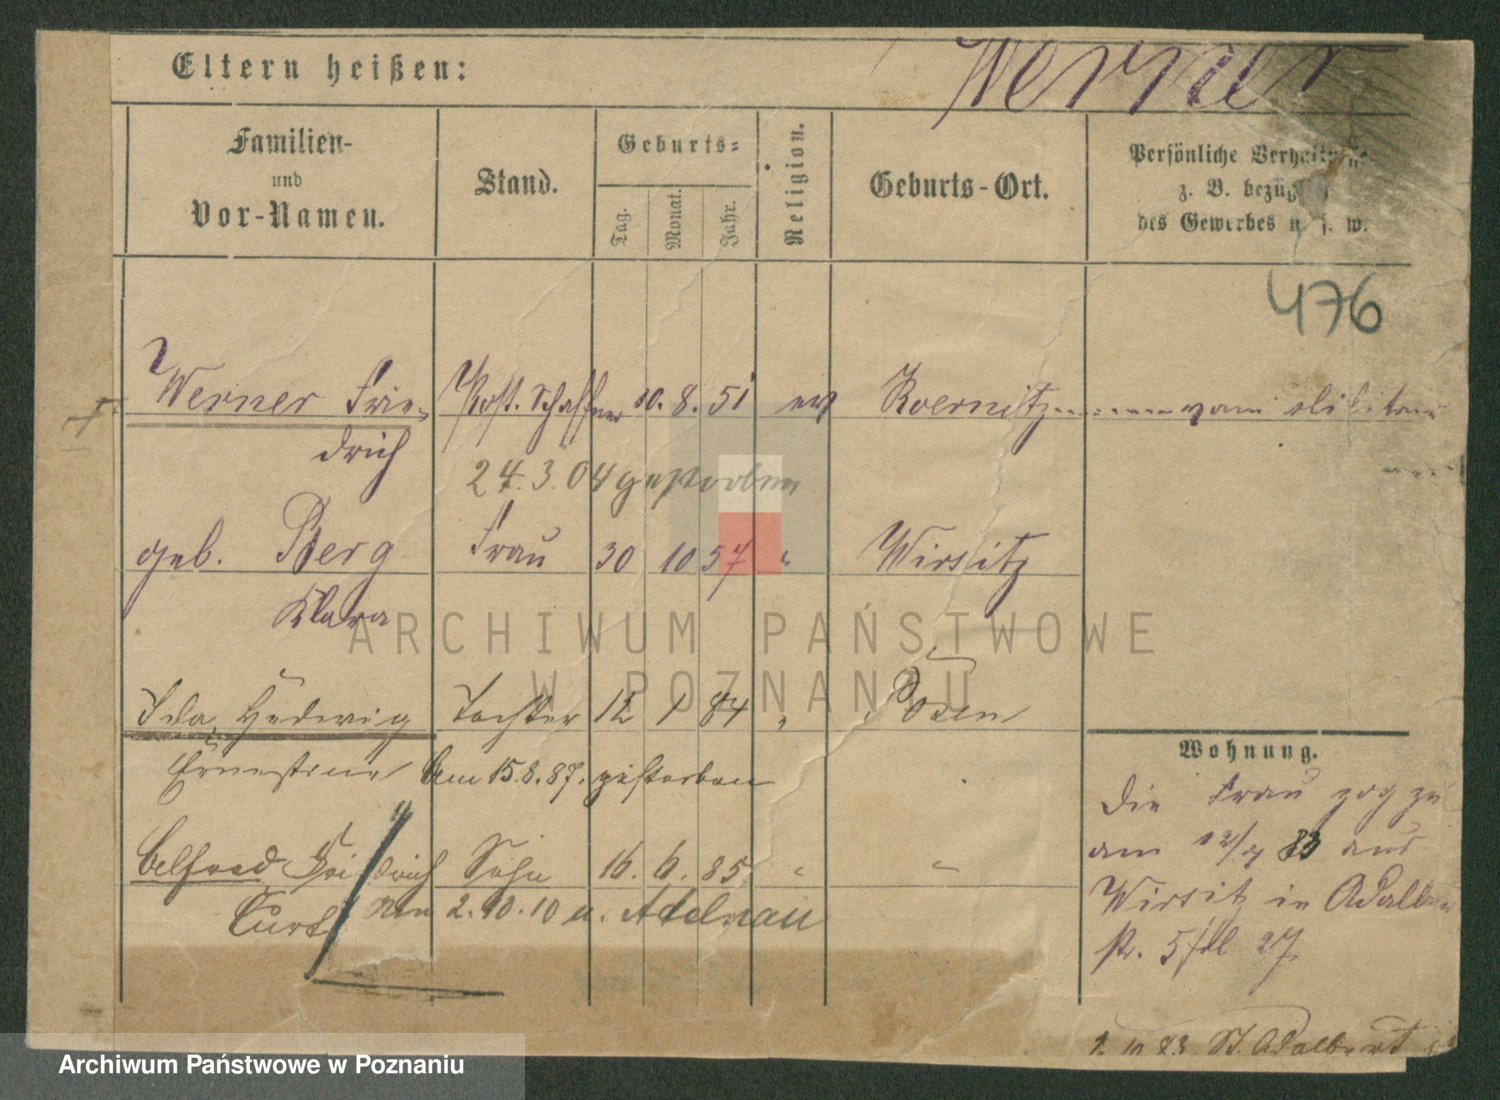 Eltern heißen:
Werner
Familien-
und
Vor-Namen.
Stand.
Geburts=
Tag.
Monat.
Jahr.
Religion.
Geburts-Ort.
Persönliche
z. B.
des Gewerbes u. s. w.
476
Werner Frie- Post. Schaffner 10. 8. 51 ev
drich
24.3.04 gestorben
geb. Berg Frau 30 10 57 " Wirsitz
Klara
Ida, Hedwig Tochter 12 1 84 " Posen
Ernestine am 15.8.87. gestorben
Friedrich Sohn 16. 6. 85. " "
Curt 2.10.10 n. Adelnau
Wohnung.
Die Frau zog zu
am 83 aus
Wirsitz in
str. 27
83 St. Adalbert
ARCHIWUM PAŃSTWOWE
W POZNANIU
Archiwum Państwowe w Poznaniu